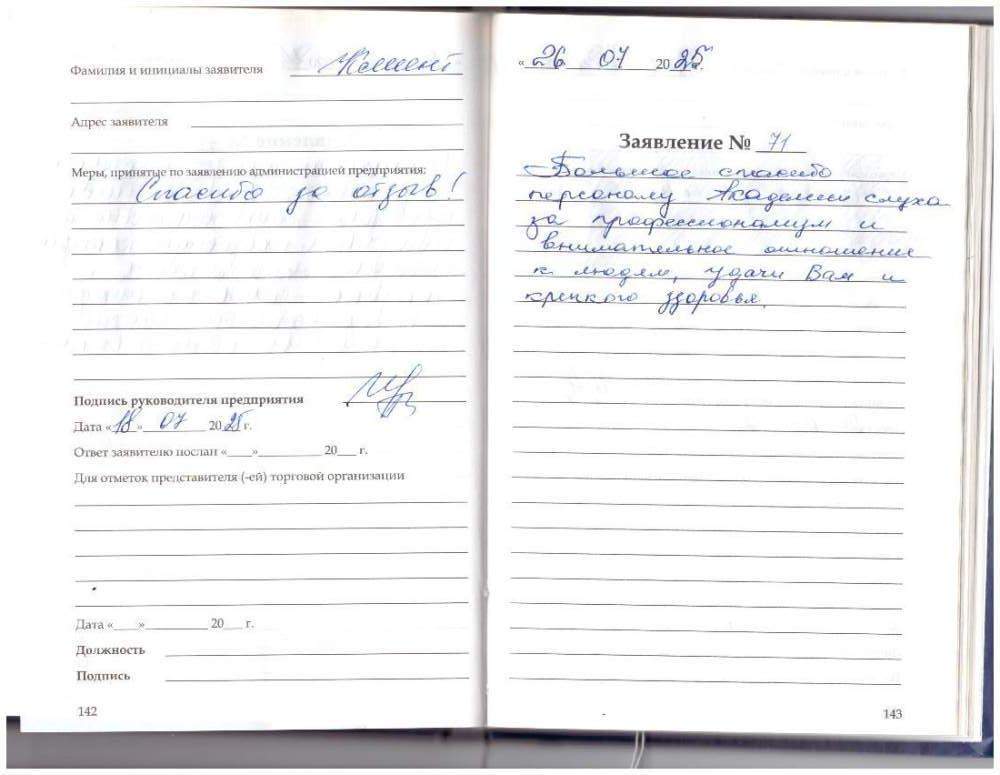 Фамилия и инициалы заявителя Клиент
Адрес заявителя
Меры, принятые по заявлению администрацией предприятия:
Спасибо за отзыв!
Подпись руководителя предприятия
Дата «18» 07 2025 г.
Ответ заявителю послан «___»__________ 20___ г.
Для отметок представителя (-ей) торговой организации
Дата «____»__________ 20___ г.
Должность
Подпись
142
«26 07 2025г.
Заявление № 71
Большое спасибо
персоналу Академии слуха
за профессионализм и
внимательное отношение
к людям, удачи Вам и
крепкого здоровья.
143